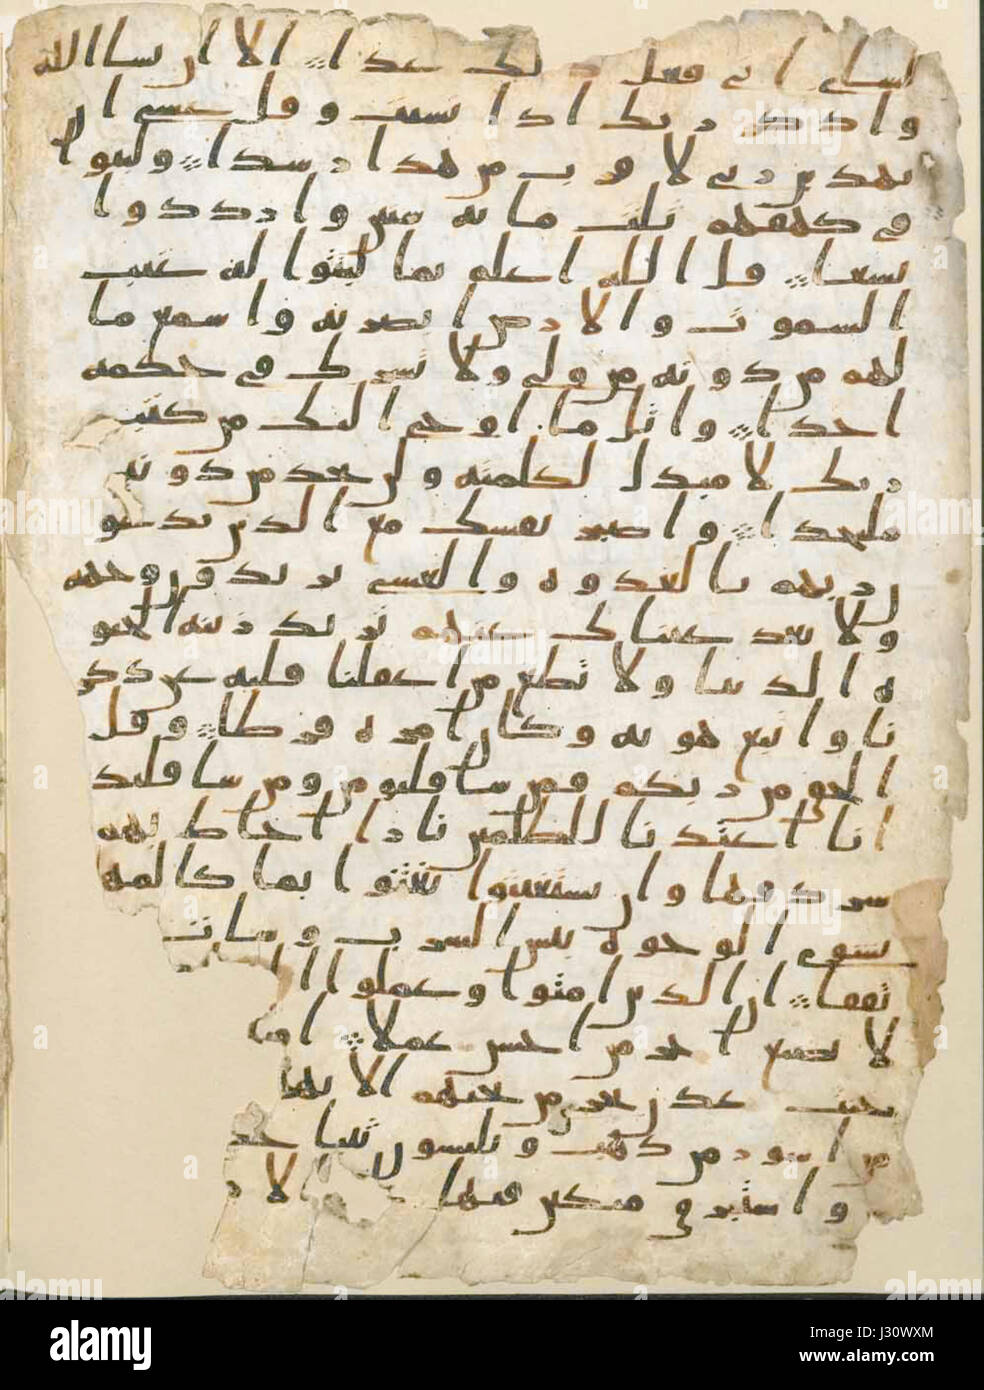 لشاي اني فعل ذلك غدا الا ان يشا الله
واذكر ربك اذا نسيت وقل عسى ان
يهدين ربي لاقرب من هذا رشدا ولبثوا
في كهفهم ثلث مايه سنين وازددوا
تسعا قل الله اعلم بما لبثوا له غيب
السموت والارض ابصر به واسمع ما
لهم من دونه من ولي ولا يشرك في حكمه
احدا واتل ما اوحي اليك من كتب
ربك لا مبدل لكلمته ولن تجد من دونه
ملتحدا واصبر نفسك مع الذين يدعو
ن ربهم بالغدوه والعشي يريدون وجهه
ولا تعد عيناك عنهم تريد زينه الحيو
ه الدنيا ولا تطع من اغفلنا قلبه عن ذكر
نا واتبع هويه وكان امره فرطا وقل
الحق من ربكم فمن شا فليومن ومن شا فليكـ
انا اعتدنا للظلمين نارا احاط بهم
سردقها وان يستغيثوا يغثوا بما كالمه
يشوي الوجوه بيس الشرب وسات
تفقا ان الذين امنوا وعملوا ا
لا نضيع اجر من احسن عملا او
تحت عدن تجري من تحتهم الانها
من اسور من ذهب ويلبسون ثيبا خ
واستبرق متكين فيها الار
alamy
Image ID: J30WXM
www.alamy.com